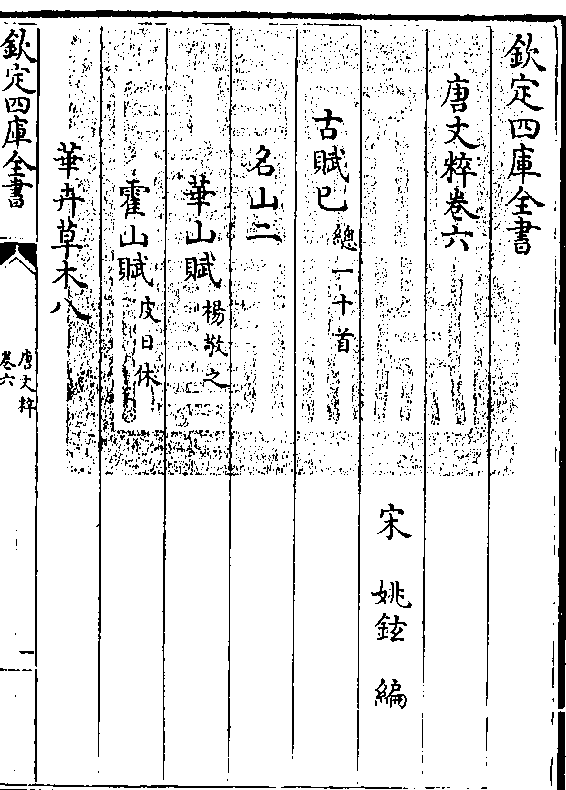 欽定四庫全書
唐文粹卷六
宋　姚鉉　編
古賦己總一十首
名山二
華山賦楊敬之
霍山賦皮日休
華卉草木八
欽定四庫全書
唐文粹
卷六
一